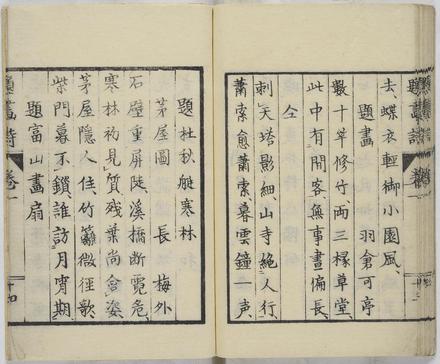 去、蝶衣輕御小園風、
題畫　羽倉可亭
數十竿修竹、兩三楹草堂、
此中有閒客、無事晝偏長、
仝
刺天塔影細、山寺絶人行、
蕭索愈蕭索、暮雲鐘一声
題杜秋艇寒林
茅屋圖　長　梅外
石壁重屏陡、溪橋斷霓危、
寒林初見質、残葉尚含姿、
茅屋隱人住、竹籬微徑欹、
柴門暮不鎖、誰訪月宵期、
題富山畫扇
卷一
十四